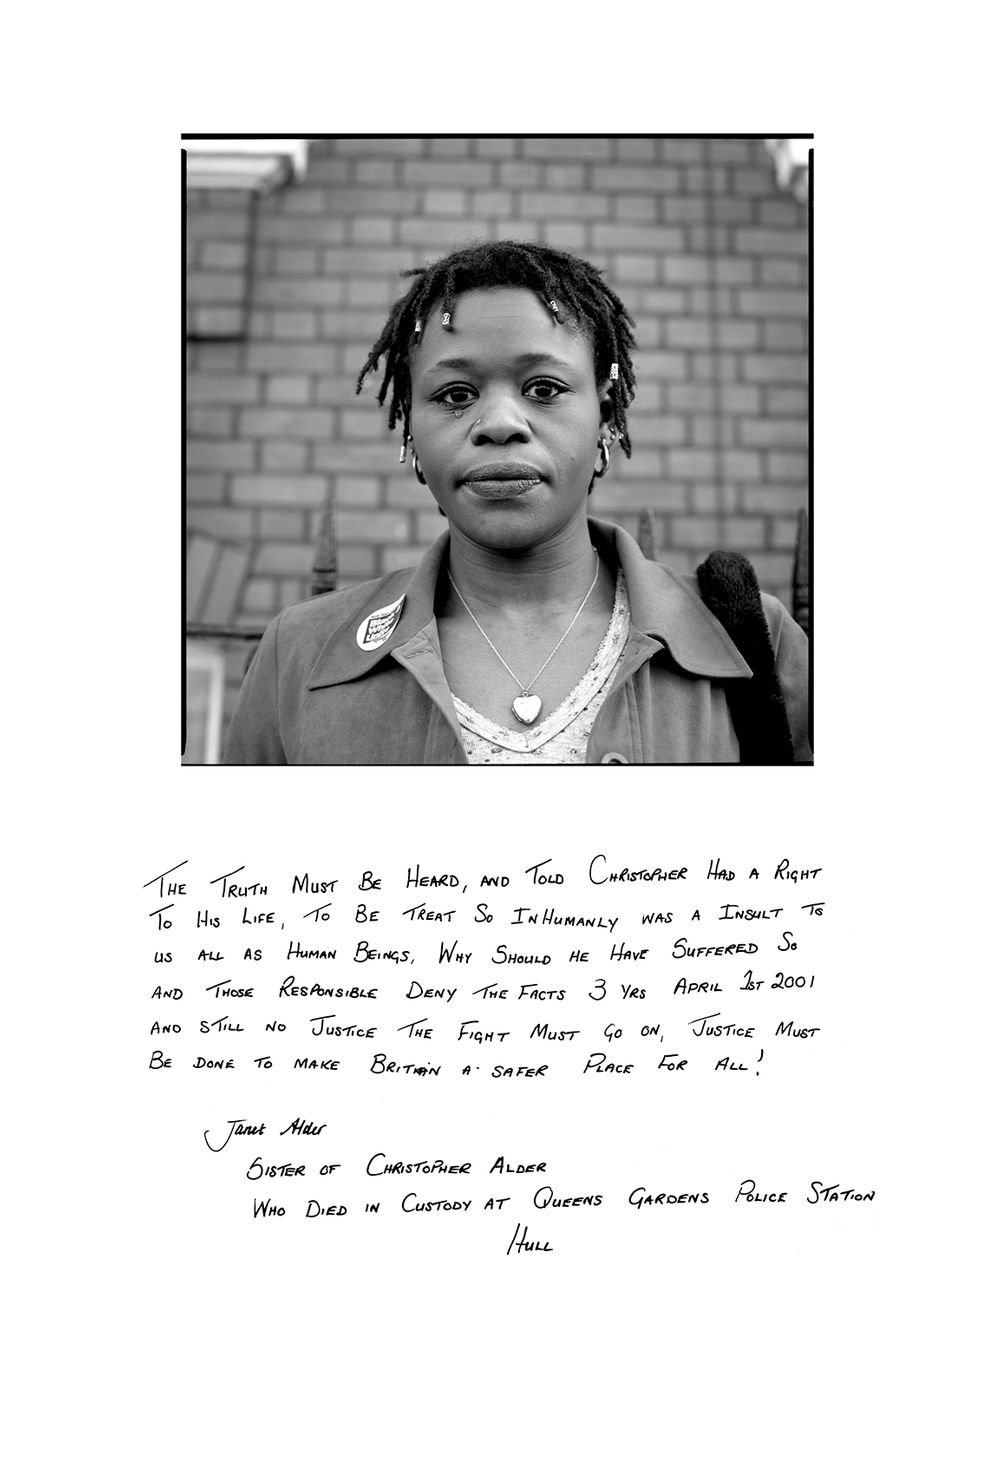 The Truth Must Be Heard, and Told Christopher Had a Right
To His Life, To Be Treat So InHumanly was a Insult To
us all as Human Beings, Why Should he Have Suffered So
And Those Responsible Deny The Facts 3 yrs April 1st 2001
And still no Justice The Fight Must go on, Justice Must
Be done to make Britain a safer Place For All!
Janet Alder
Sister of Christopher Alder
Who Died in Custody at Queens Gardens Police Station
Hull